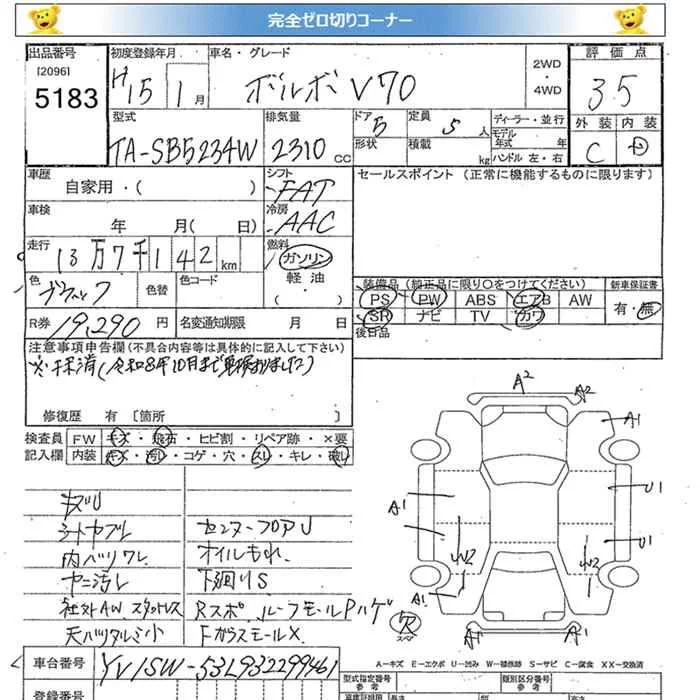 完全ゼロ切りコーナー
出品番号 初度登録年月 車名・グレード 2WD 評価点
[2096] ・
5183 H15 1月 ボルボ V70 4WD 3.5
外装 内装
型式 排気量 ドア 5 定員 5人 ディーラー・並行 C D
TA-SB5234W 2310cc 形状 積載 kg モデル年式 年
ハンドル 左・右
車歴 シフト セールスポイント (正常に機能するものに限ります)
自家用・( ) FAT
車検 冷房
年 月( 日) AAC
走行 13万7千142km 燃料 ガソリン
色 ブラック 色替 色コード 軽油
・( )
装備品 (純正品に限り○をつけてください) 新車保証書
PS PW ABS エアB AW 有・無
SR ナビ TV カワ
R券 19,290円 名変通知期限 月 日 後日品
注意事項申告欄 (不具合内容等は具体的に記入して下さい)
※抹消(令和8年10月まで車検ありました)
修復歴 有 〔箇所 〕
検査員 FW キズ・飛石・ヒビ割・リペア跡・×要
記入欄 内装 キズ・汚レ・コゲ・穴・スレ・キレ・破レ
キズU
シートヤブレ センターフロアU
内ハリワレ オイルもれ
ヤニ汚レ 下廻りS
社外AW スタットレス Rスポ、ルーフモールPハゲ
天バリタルミ小 FガラスモールX
A2 A2
A1
A1 U1
W2 W2 U1
A1 A1 A1
欠
スペア
A−キズ E−エクボ U−凹み W−補修跡 S−サビ C−腐食 XX−交換済
車台番号 YV1SW-53L932299461
型式指定番号 類別区分番号
参考 参考
登録番号